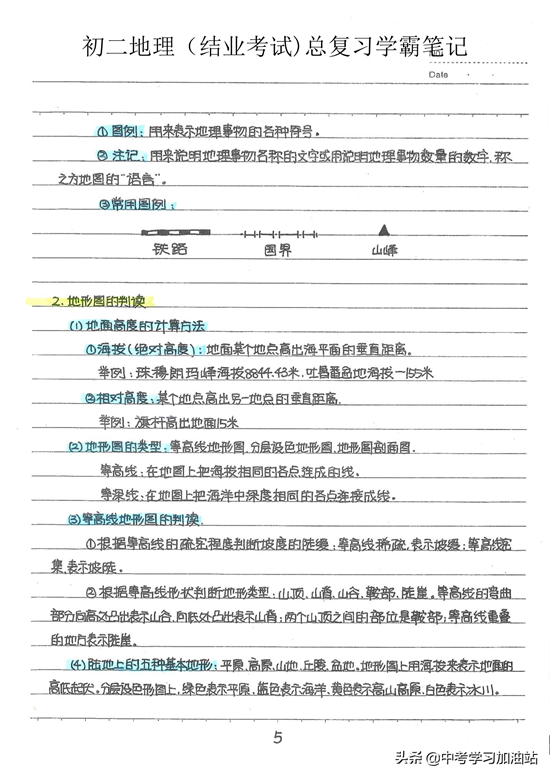 初二地理（结业考试)总复习学霸笔记
Date
①图例：用来表示地理事物的各种符号。
②注记：用来说明地理事物名称的文字或用说明地理事物数量的数字,称
之为地图的“语言”。
③常用图例：
铁路 国界 山峰
2.地形图的判读
(1)地面高度的计算方法
①海拔(绝对高度)：地面某个地点高出海平面的垂直距离。
举例：珠穆朗玛峰海拔8844.43米.吐鲁番盆地海拔-155米
②相对高度：某个地点高出另一地点的垂直距离.
举例：旗杆高出地面15米
(2)地形图的类型：等高线地形图.分层设色地形图.地形图剖面图.
等高线：在地图上把海拔相同的各点连成的线。
等深线：在地图上把海洋中深度相同的各点连接成线。
(3)等高线地形图的判读.
①根据等高线的疏密程度判断坡度的陡缓；等高线稀疏,表示坡缓；等高线密
集,表示坡陡.
②根据等高线形状判断地形类型：山顶.山脊.山谷.鞍部.陡崖。等高线的弯曲
部分向高处凸出表示山谷.向低处凸出表示山脊；两个山顶之间的部位是鞍部；等高线重叠
的地方表示陡崖.
(4)陆地上的五种基本地形：平原.高原.山地.丘陵.盆地.地形图上用海拔来表示地面的
高低起伏.分层设色地形图上,绿色表示平原,蓝色表示海洋.黄色表示高山高原.白色表示冰川。
5
头条@中考学习加油站